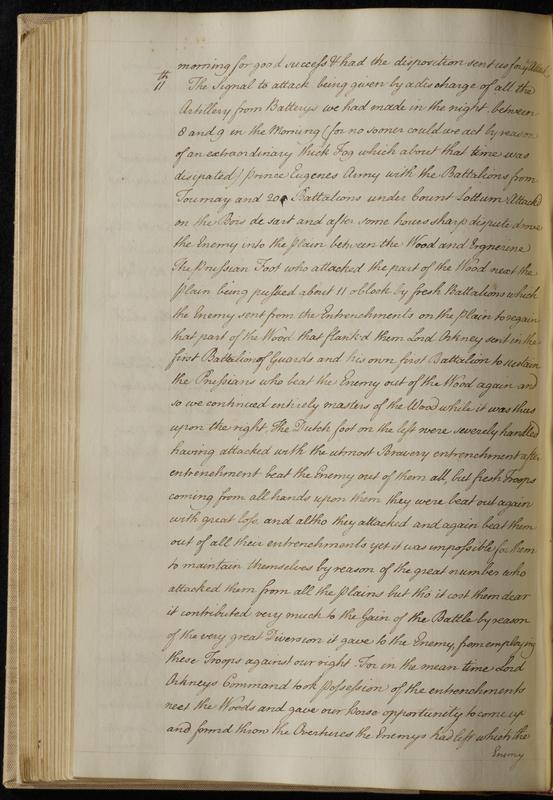 morning for good success & had the disposition sent us for yᵉ Attack
11th The Signal to attack being given by a discharge of all the
Artillery from Batterys we had made in the night between
8 and 9 in the Morning (for no sooner could we act by reason
of an extraordinary thick Fog which about that time was
disipated) prince Eugenes Army with the Battalions from
Tournay and 20 Battalions under Count Lottum Attack'd
on the Bois de sart and after some hours sharp dispute drove
the Enemy into the plain between the Wood and
The prussian Foot who attacked the part of the Wood next the
plain being pushed about 11 o Clock by fresh Battalions which
the Enemy sent from the Entrenchments on the plain to regain
that part of the Wood that flank'd them Lord Orkney sent in the
first Battalion of Guards and his own first Battalion to sustain
the Prussians who beat the Enemy out of the Wood again and
so we continued entirely masters of the Wood while it was thus
upon the right. The Dutch foot on the left were severely handled
having attacked with the utmost Bravery entrenchment after
entrenchment beat the Enemy out of them all, but fresh Troops
coming from all hands upon them they were beat out again
with great loss, and altho they attacked and again beat them
out of all their entrenchments yet it was impossible for them
to maintain themselves by reason of the great number who
attacked them from all the plains but tho it cost them dear
it contributed very much to the Gain of the Battle by reason
of the very great Diversion it gave to the Enemy, from employing
these Troops against our right. For in the mean time Lord
Orkneys Command took possession of the entrenchments
next the Woods and gave our horse opportunity to come up
and form'd thro the Overtures the Enemys had left which the
Enemy